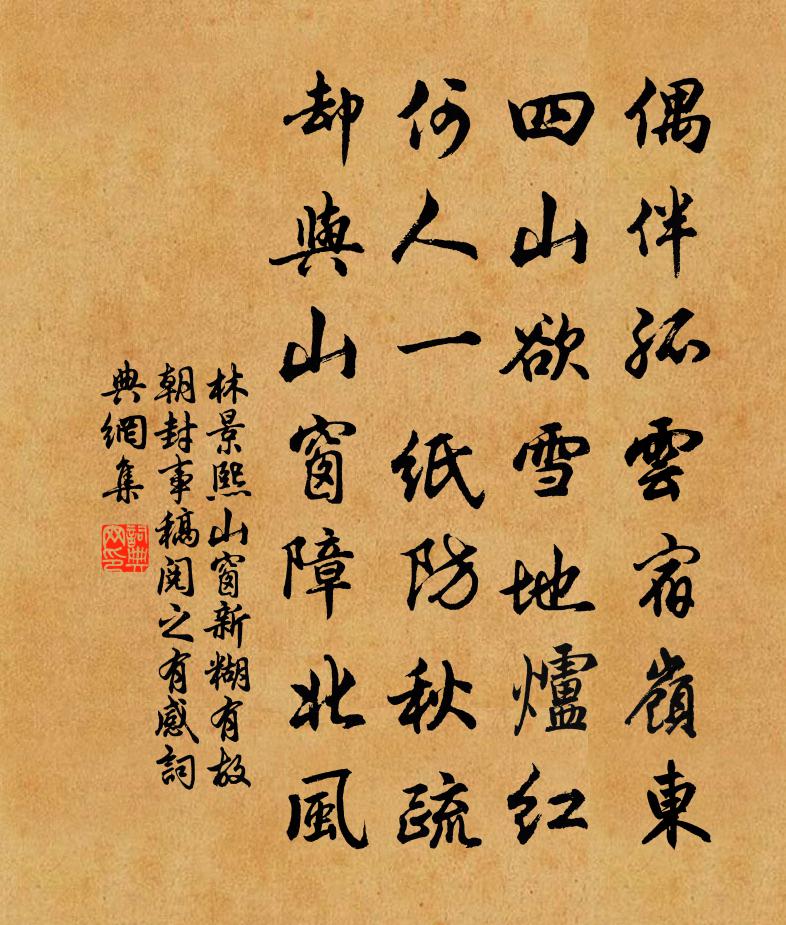 偶伴孤雲宿嶺東
四山欲雪地爐紅
何人一紙防秋疏
却與山窗障北風
林景熙山窗新糊有故
朝封事稿閱之有感詞
典網集
詞典
网印